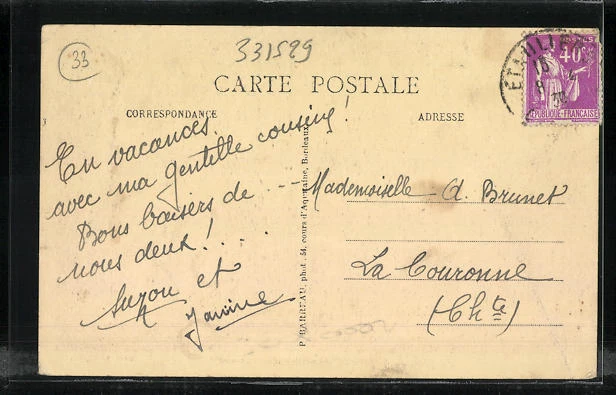 33
331589
CARTE POSTALE
CORRESPONDANCE
ADRESSE
POSTES
40c
RÉPUBLIQUE-FRANÇAISE
ETAULIERS
En vacances
avec ma gentille cousine!
Bons baisers de ...
nous deux! ....
Suzou et
Janine
P. BARREAU, phot. 54, cours d'Aquitaine, Bordeaux
Mademoiselle A. Brunet
La Couronne
(Chte)